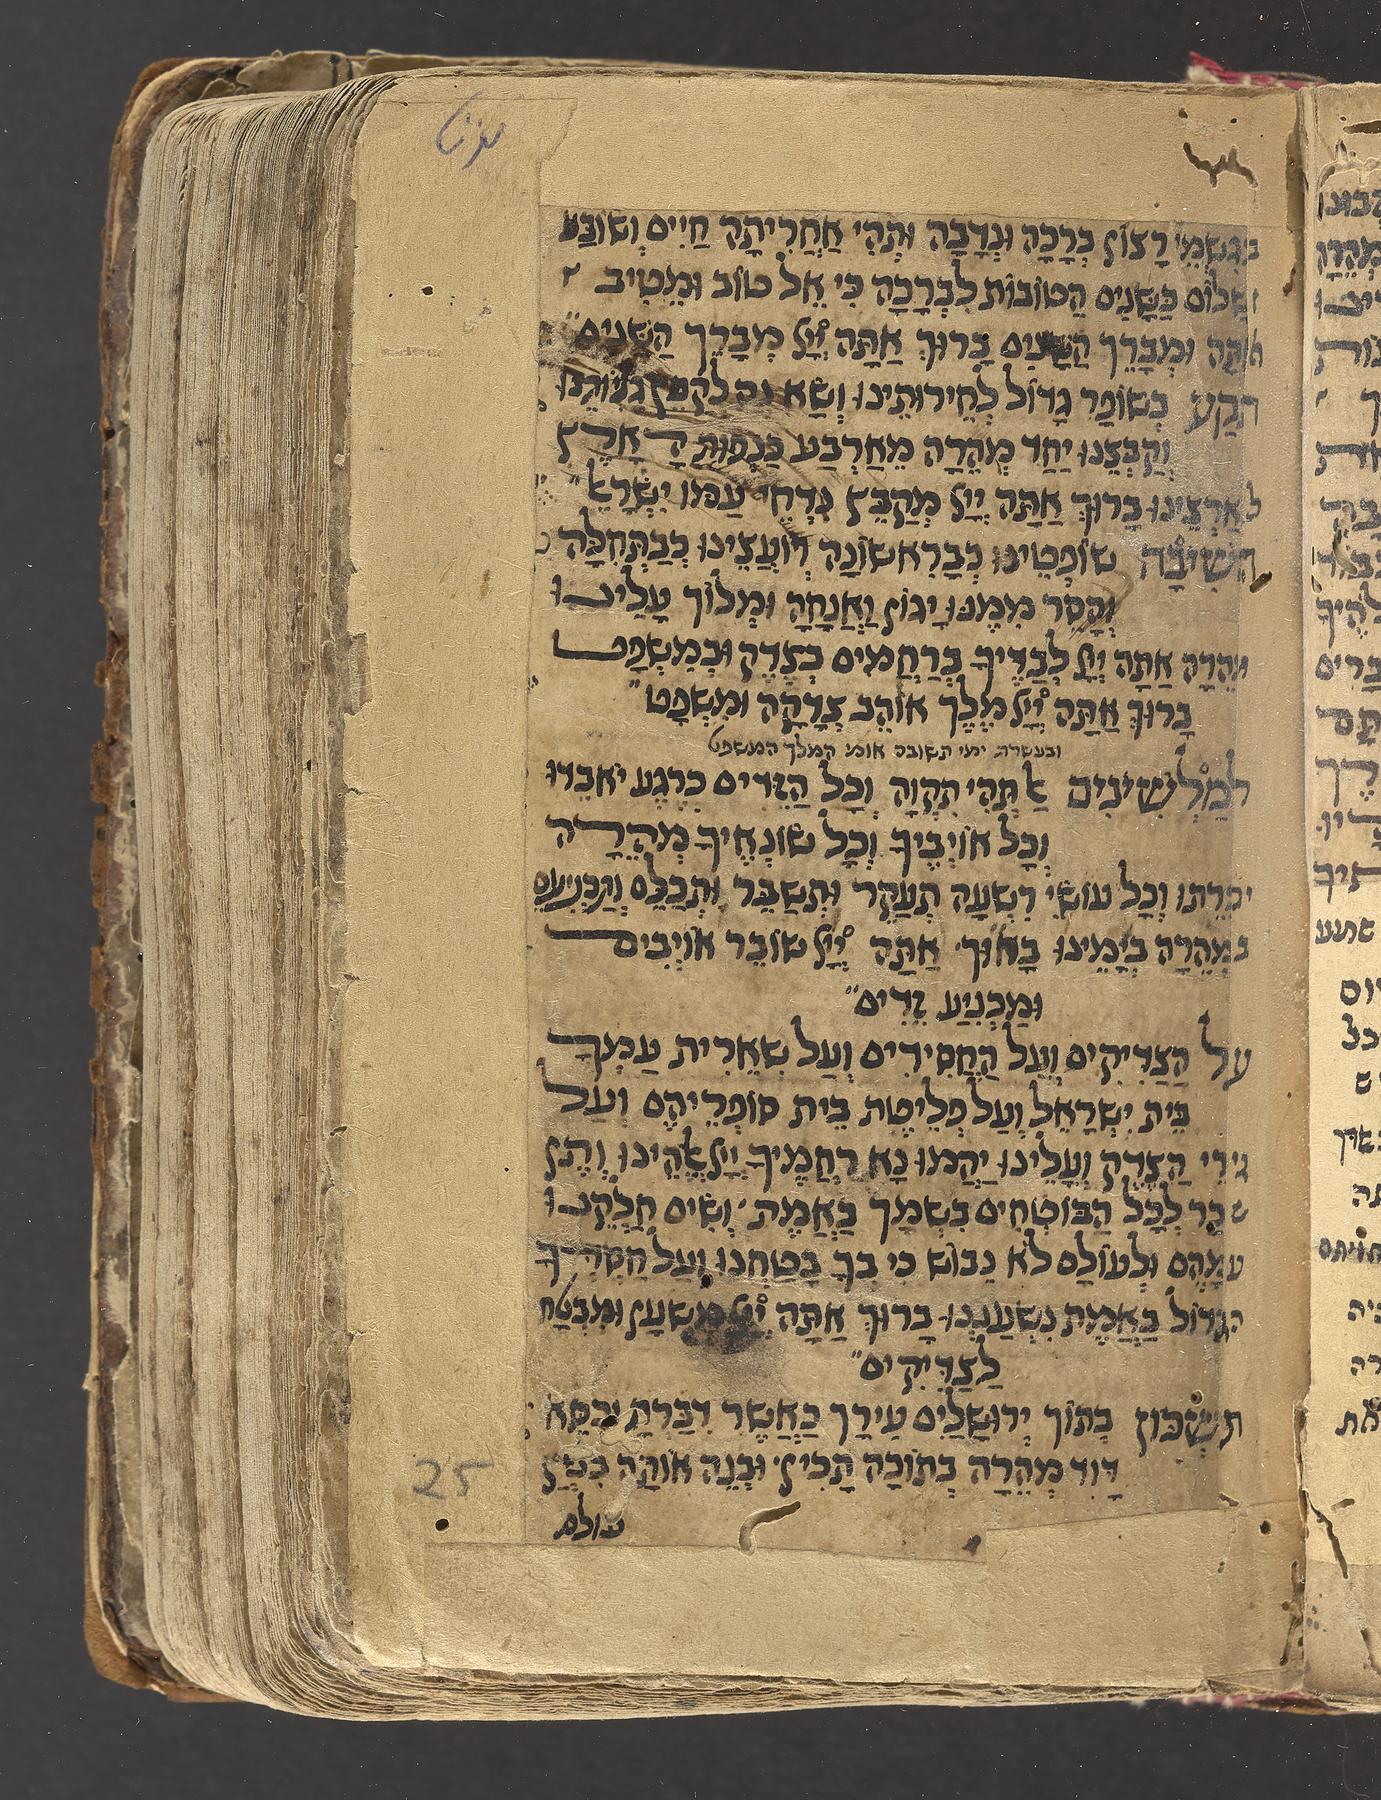 בגשמי רצון ברכה ונדבה ותהי אחריתה חיים ושובע
ושלום כשנים הטובות לברכה כי אל טוב ומטיב
אתה ומברך השנים ברוך אתה ייי מברך השנים
תקע בשופר גדול לחירותינו ושא נס לקבץ גליותינו
וקבצנו יחד מהרה מארבע כנפות הארץ
לארצינו ברוך אתה ייי מקבץ נדחי עמו ישראל
השיבה שופטינו כבראשונה ויועצינו כבתחלה
והסר ממנו יגון ואנחה ומלוך עלינו
מהרה אתה ייי לבדיך ברחמים בצדק ובמשפט
ברוך אתה ייי מלך אוהב צדקה ומשפט
ובעשרת ימי תשובה אומ המלך המשפט
למלשינים אל תהי תקוה וכל הזדים כרגע יאבדו
וכל אויביך וכל שונאיך מהרה
יכרתו וכל עושי רשעה תעקר ותשבר ותכלם ותכניעם
במהרה בימינו ברוך אתה ייי שובר אויבים
ומכניע זדים
על הצדיקים ועל החסידים ועל שארית עמך
בית ישראל ועל פליטת בית סופריהם ועל
גירי הצדק ועלינו יהמו נא רחמיך ייי אלהינו ותן
שכר לכל הבוטחים בשמך באמת ושים חלקנו
עמהם ולעולם לא נבוש כי בך בטחנו ועל חסדך
הגדול באמת נשעננו ברוך אתה ייי משען ומבטח
לצדיקים
תשכון בתוך ירושלים עירך כאשר דברת וכסא
דוד מהרה בתוכה תכין ובנה אותה בנין
עולם
25